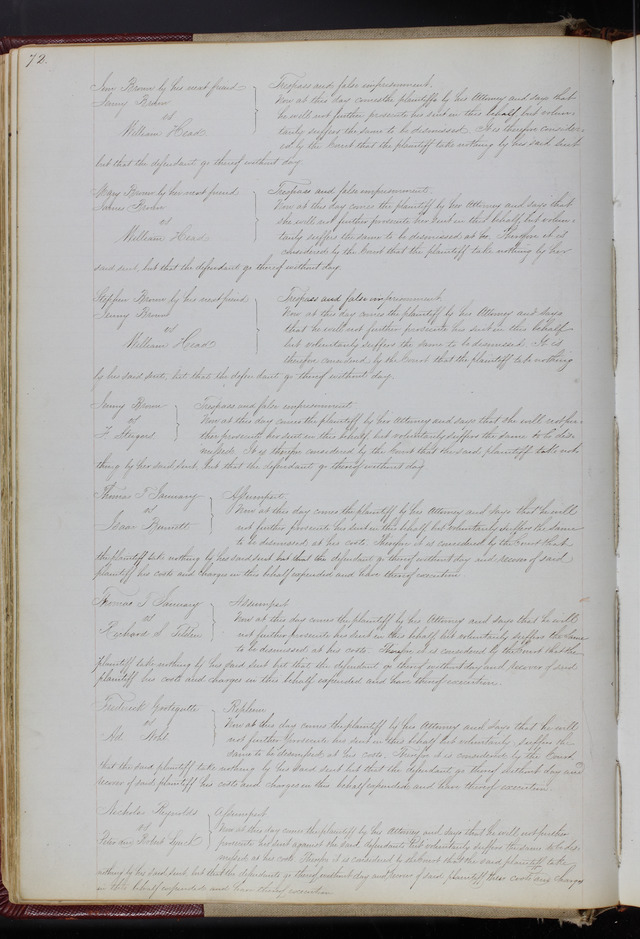 72.
Ann Brown by his next friend } Trespass and false imprisonment.
Jenny Brown Now at this day comes the plaintiff by his Attorney and says that
vs he will not further prosecute his suit in this behalf but volun-
William Head tarily suffers the same to be dismissed. It is therefore consider-
ed by the Court that the plaintiff take nothing by his said suit
but that the defendant go thereof without day
Mary Brown by her next friend } Trespass and false imprisonment.
Brown Now at this day comes the plaintiff by her Attorney and says that
vs she will not further prosecute her suit in this behalf but volun-
William Head tarily suffers the same to be dismissed at &c. Therefore it is
considered by the Court that the plaintiff take nothing by her
said suit, but that the defendant go thereof without day.
Stephen Brown by his next friend } Trespass and false imprisonment
Jenny Brown Now at this day comes the plaintiff by his Attorney and says
vs that he will not further prosecute his suit in this behalf
William Head but voluntarily suffers the same to be dismissed. It is
therefore considered by the Court that the plaintiff take nothing
by his said suit, but that the defendant go thereof without day.
Jenny Brown } Trespass and false imprisonment
vs Now at this day comes the plaintiff by her Attorney and says that she will not fur-
F. ther prosecute her suit in this behalf but voluntarily suffers the same to be dis-
missed. It is therefore considered by the Court that the said plaintiff take not-
thing by her said suit but that the defendant go thereof without day
Thomas T January } Assumpsit
vs Now at this day comes the plaintiff by his Attorney and says that he will
Isaac Bennett not further prosecute his suit in this behalf but voluntarily suffers the same
to be dismissed at his costs. Therefore it is considered by the Court that
the plaintiff take nothing by his said suit but that the defendant go thereof without day and recover of said
plaintiff his costs and charges in this behalf expended and have thereof execution
Thomas T January } Assumpsit
vs Now at this day comes the plaintiff by his Attorney and says that he will
Richard S Tilden not further prosecute his suit in this behalf but voluntarily suffers the same
to be dismissed at his costs. Therefore it is considered by the Court that the
plaintiff take nothing by his said suit but that the defendant go thereof without day and recover of said
plaintiff his costs and charges in this behalf expended and have thereof execution.
Frederick } Replevin
vs Now at this day comes the plaintiff by his Attorney and says that he will
Ad. not further prosecute his suit in this behalf but voluntarily suffers the
same to be dismissed at his costs. Therefore it is considered by the Court
that the said plaintiff take nothing by his said suit but that the defendant go thereof without day and
recover of said plaintiff his costs and charges in this behalf expended and have thereof execution.
Nicholas Reynolds } Assumpsit
vs Now at this day comes the plaintiff by his Attorney and says that he will not further
Robert Lynch prosecute his suit against the said defendants but voluntarily suffers the same to be dis-
missed at his costs. Therefore it is considered by the Court that the said plaintiff take
nothing by his said suit but that the defendants go thereof without day and recover of said plaintiff their costs and charges
in this behalf expended and have thereof execution